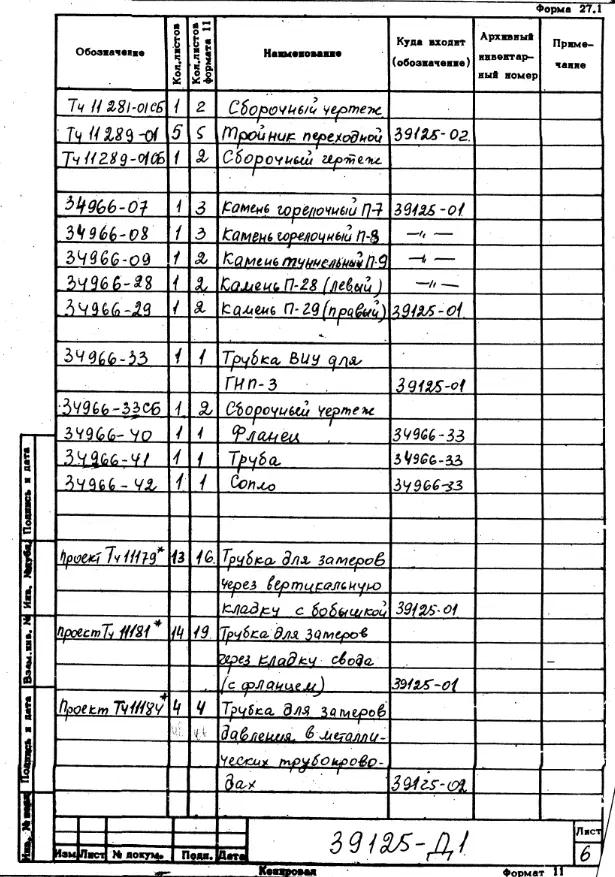 Форма 27.1
Обозначение Кол.листов Кол.листов формата 11 Наименование Куда входит (обозначение) Архивный инвентар- ный номер Приме- чание
Тч 11281-01СБ 1 2 Сборочный чертеж
Тч 11289-01 5 5 Тройник переходной 39125-02
Тч11289-01СБ 1 2 Сборочный чертеж
34966-07 1 3 Камень горелочный П-7 39125-01
34966-08 1 3 Камень горелочный П-8 —〃—
34966-09 1 2 Камень туннельный П-9 —〃—
34966-28 1 2 Камень П-28 (левый) —〃—
34966-29 1 2 Камень П-29 (правый) 39125-01
34966-33 1 1 Трубка ВИУ для
ГНП-3 39125-01
34966-33СБ 1 2 Сборочный чертеж
34966-40 1 1 Фланец 34966-33
34966-41 1 1 Труба 34966-33
34966-42 1 1 Сопло 34966-33
Проект Тч11179* 13 16 Трубка для замеров
через вертикальную
кладку с бобышкой 39125-01
Проект Тч 11181* 14 19 Трубка для замеров
через кладку свода
(с фланцем) 39125-01
Проект Тч11184* 4 4 Трубка для замеров
давления в металли-
ческих трубопрово-
дах 39125-02
Инв. № подл. Подпись и дата Взам.инв. № Инв. №дубл. Подпись и дата
Изм Лист № докум. Подп. Дата
39125-Д1
Лист
6
Копировал Формат 11